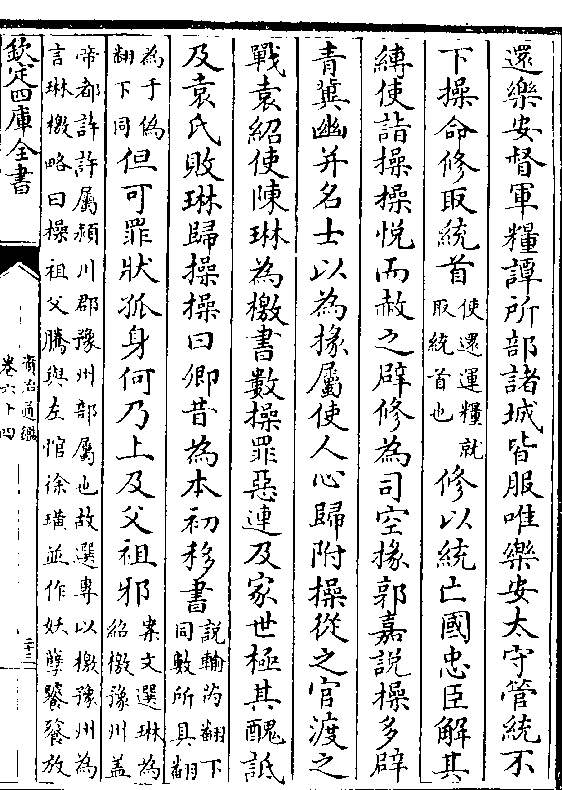 還樂安督軍糧譚所部諸城皆服唯樂安太守管統不
下操命修取統首使還運糧就取統首也修以統亡國忠臣解其
縛使詣操操悅而赦之辟修為司空掾郭嘉說操多辟
青冀幽并名士以為掾屬使人心歸附操從之官渡之
戰袁紹使陳琳為檄書數操罪惡連及家世極其醜詆
及袁氏敗琳歸操操曰卿昔為本初移書說輸芮翻下同數所具翻
為于偽翻下同但可罪狀孤身何乃上及父祖邪案文選琳為紹檄豫州盖
帝都許許屬潁川郡豫州部屬也故選專以檄豫州為
言琳檄略曰操祖父騰與左悺徐璜並作妖孽饕餮放
欽定四庫全書
資治通鑑
卷六十四
三十二